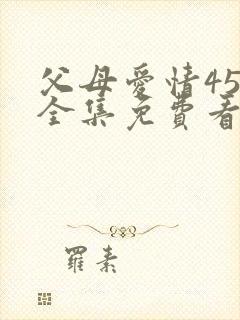 父母愛情45
全集免費看
羅素